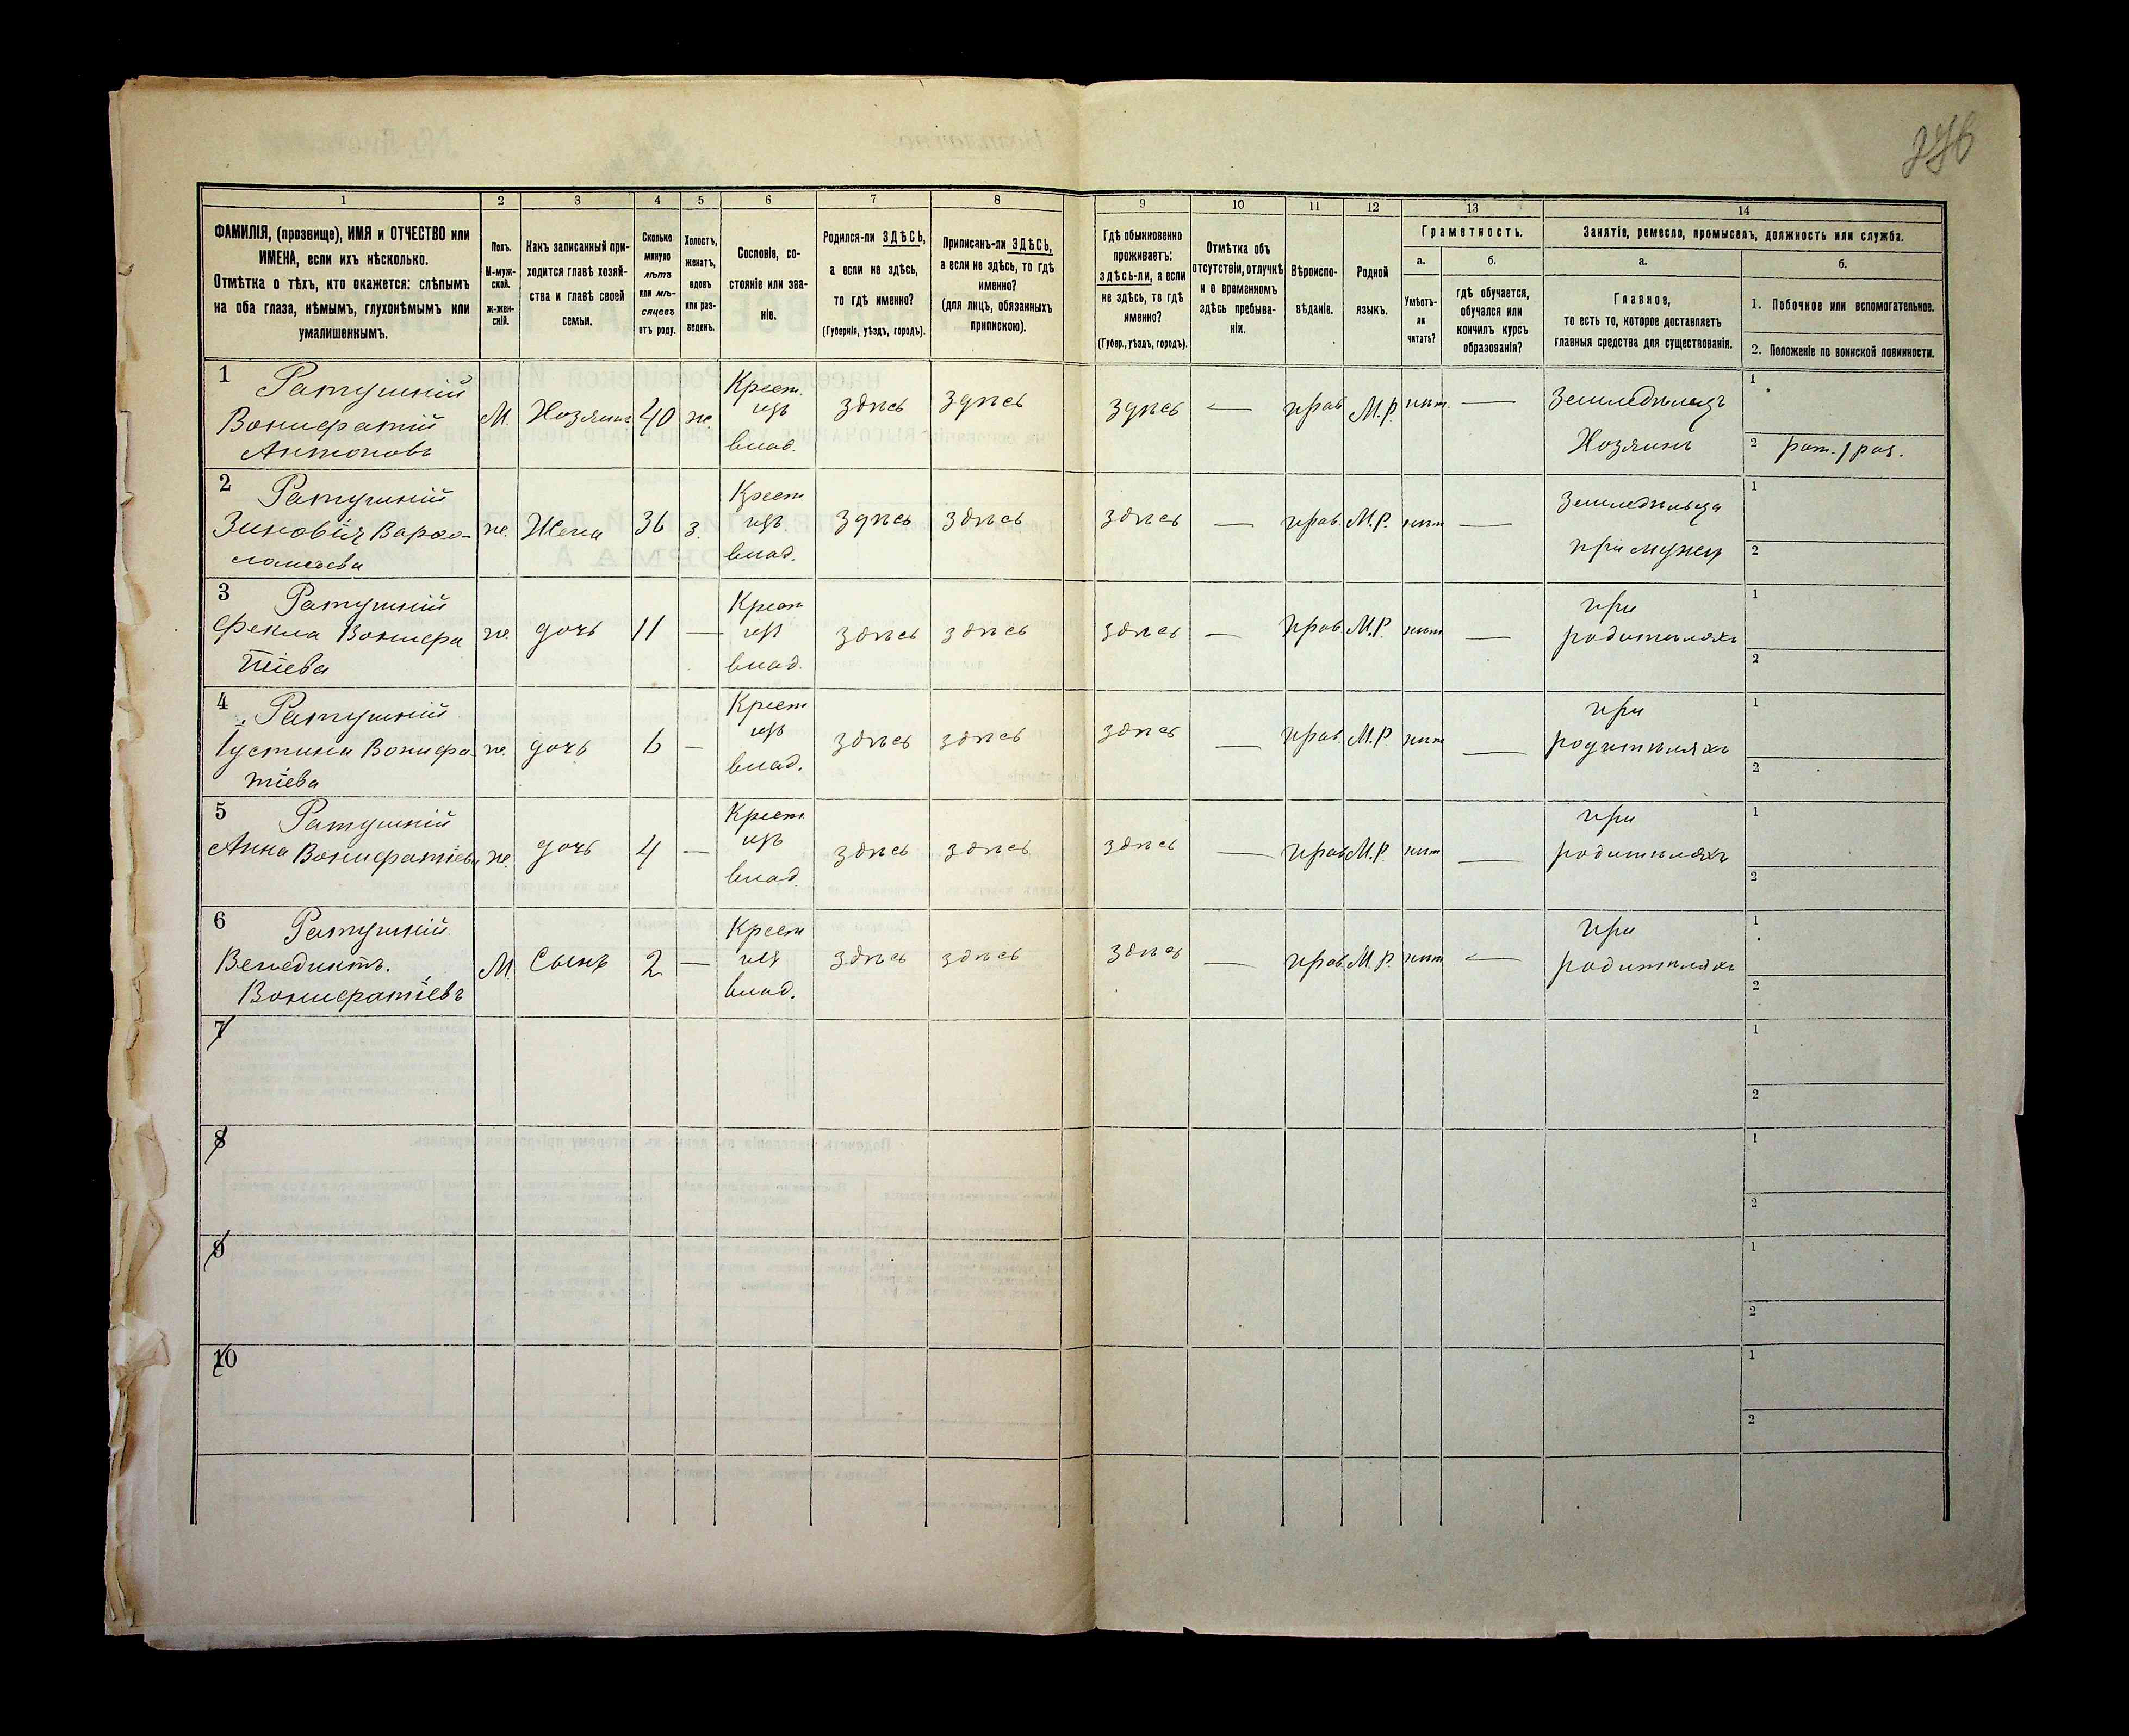 276
1 2 3 4 5 6 7 8 9 10 11 12 13 14
ФАМИЛІЯ, (прозвище), ИМЯ и ОТЧЕСТВО или
ИМЕНА, если ихъ нѣсколько.
Отмѣтка о тѣхъ, кто окажется: слѣпымъ
на оба глаза, нѣмымъ, глухонѣмымъ или
умалишеннымъ.
Полъ.
М-муж-
ской.
ж-жен-
скій.
Какъ записанный при-
ходится главѣ хозяй-
ства и главѣ своей
семьи.
Сколько
минуло
лѣтъ
или мѣ-
сяцевъ
отъ роду.
Холостъ,
женатъ,
вдовъ
или раз-
веденъ.
Сословіе, со-
стояніе или зва-
ніе.
Родился-ли ЗДѢСЬ,
а если не здѣсь,
то гдѣ именно?
(Губернія, уѣздъ, городъ).
Приписанъ-ли ЗДѢСЬ,
а если не здѣсь, то гдѣ
именно?
(для лицъ, обязанныхъ
припискою).
Гдѣ обыкновенно
проживаетъ:
здѣсь-ли, а если
не здѣсь, то гдѣ
именно?
(Губер., уѣздъ, городъ).
Отмѣтка объ
отсутствіи, отлучкѣ
и о временномъ
здѣсь пребыва-
ніи.
Вѣроиспо-
вѣданіе.
Родной
языкъ.
Грамотность.
а.
Умѣетъ-
ли
читать?
б.
гдѣ обучается,
обучался или
кончилъ курсъ
образованія?
Занятіе, ремесло, промыселъ, должность или служба.
а.
Главное,
то есть то, которое доставляетъ
главныя средства для существованія.
б.
1. Побочное или вспомогательное.
2. Положеніе по воинской повинности.
1 Ратушній
Вонифатій
Антоновъ
М. Хозяинъ 40 ж.
Крест.
изъ
влад.
здѣсь здѣсь здѣсь — прав М.Р. нѣт. —
Земледѣлецъ
Хозяинъ
1
2 рат. 1 раз.
2 Ратушній
Зиновія Варфо-
ломеева
ж. Жена 36 з.
Крест
изъ
влад.
здѣсь здѣсь здѣсь — прав. М.Р. нѣт —
Земледѣльца
при мужѣ
1
2
3 Ратушній
Фекла Вонифа
тіева
ж. дочь 11 —
Крест
изъ
влад.
здѣсь здѣсь здѣсь — прав. М.Р. нѣт —
при
родителяхъ
1
2
4 Ратушній
Іустина Вонифа-
тіева
ж. дочь 6 —
Крест
изъ
влад.
здѣсь здѣсь здѣсь — прав. М.Р. нѣт —
при
родителяхъ
1
2
5 Ратушній
Анна Вонифатіева
ж. дочь 4 —
Крест.
изъ
влад.
здѣсь здѣсь здѣсь — прав М.Р. нѣт —
при
родителяхъ
1
2
6 Ратушній
Венедиктъ.
Вонифатіевъ
М. Сынъ 2 —
Крест
изъ
влад.
здѣсь здѣсь здѣсь — прав. М.Р. нѣт —
при
родителяхъ
1
2
7
1
2
8
1
2
9
1
2
10
1
2